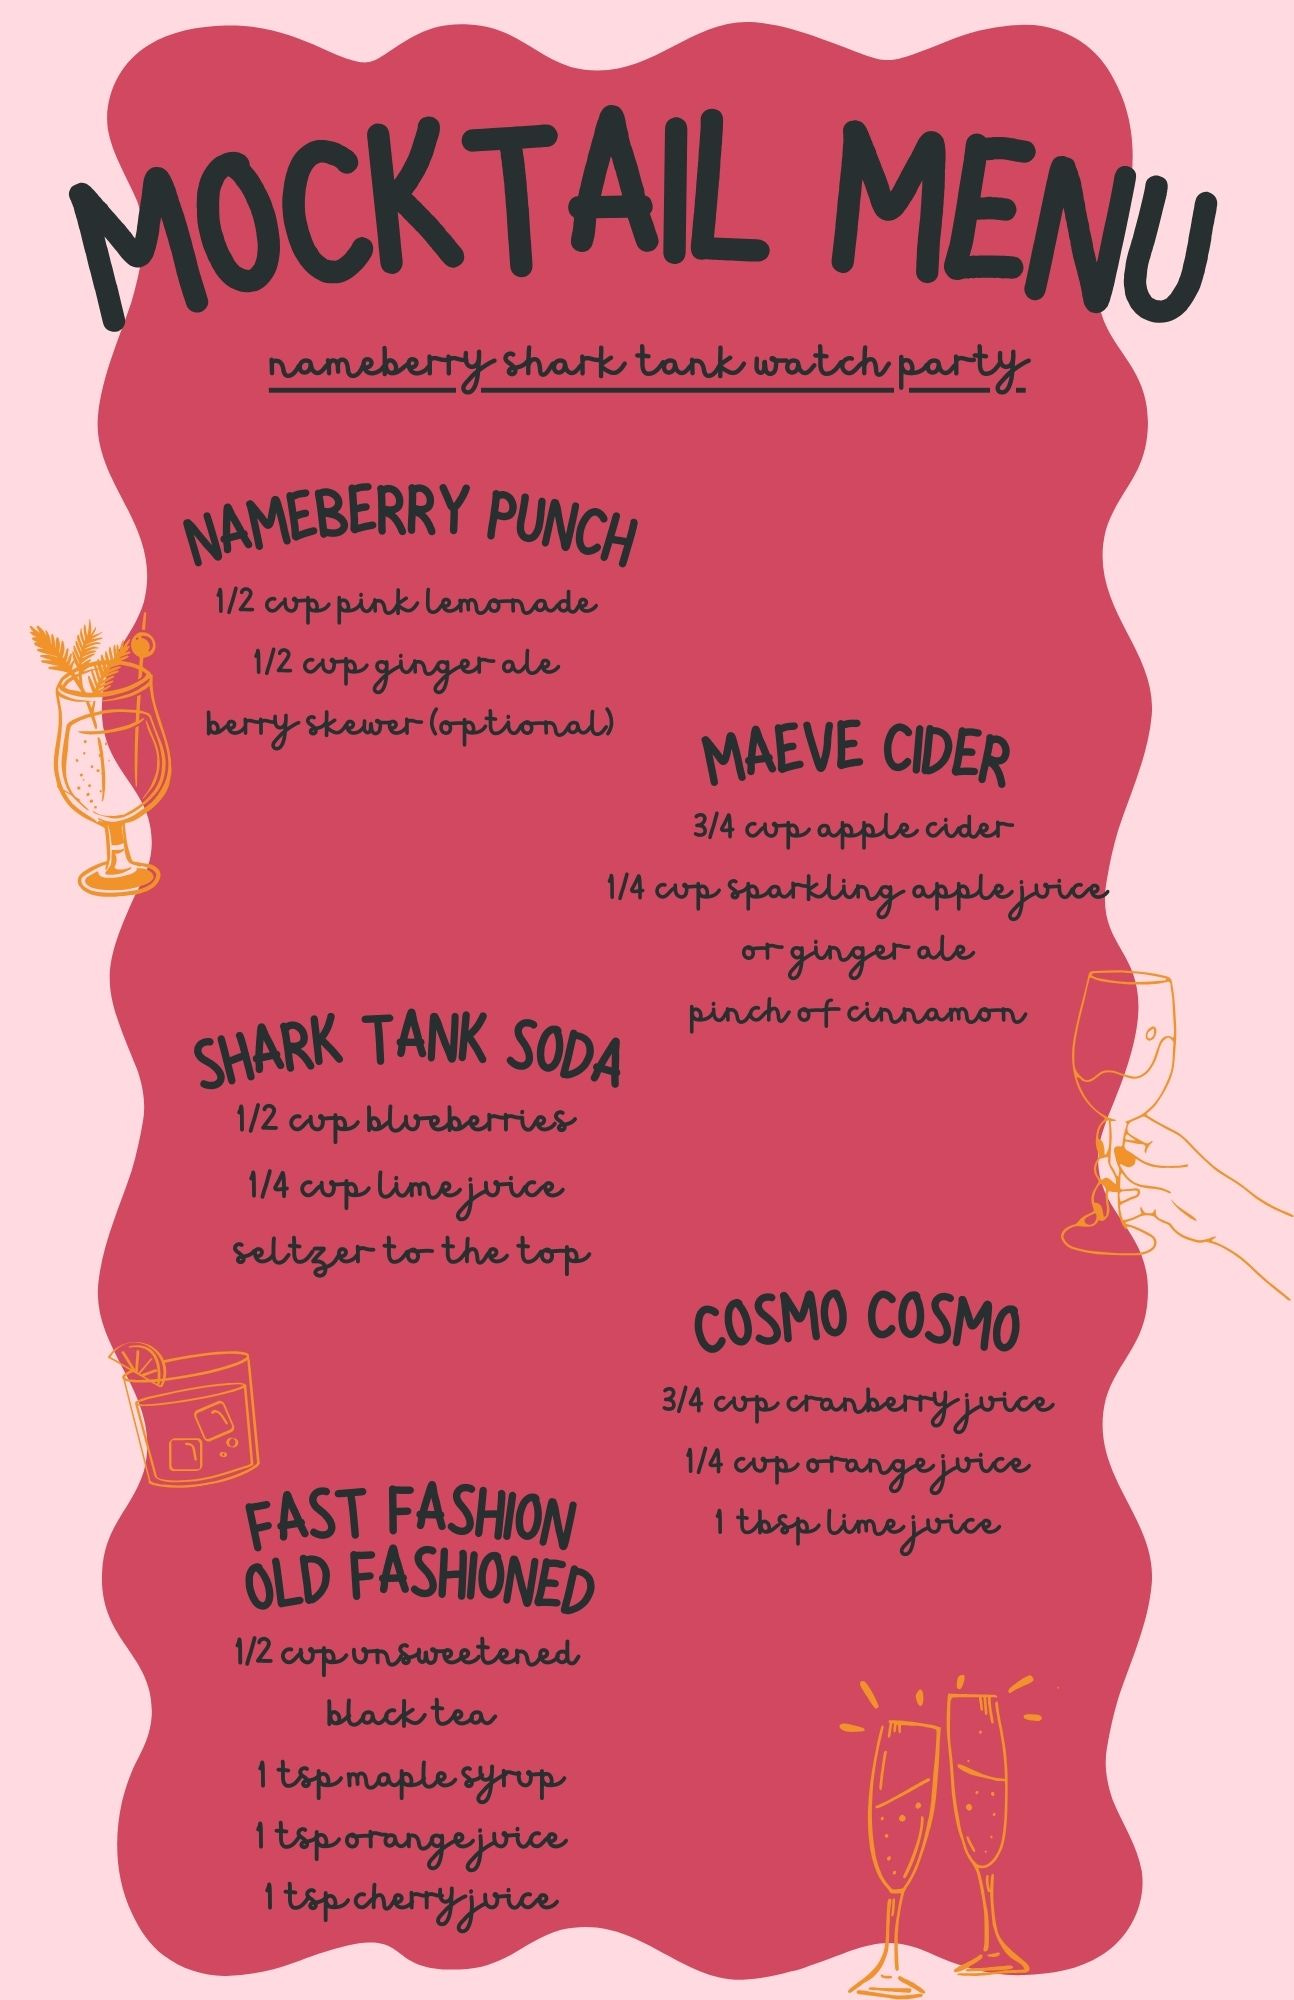 MOCKTAIL MENU
nameberry shark tank watch party
NAMEBERRY PUNCH
1/2 cup pink lemonade
1/2 cup ginger ale
berry skewer (optional)
MAEVE CIDER
3/4 cup apple cider
1/4 cup sparkling apple juice
or ginger ale
pinch of cinnamon
SHARK TANK SODA
1/2 cup blueberries
1/4 cup lime juice
seltzer to the top
COSMO COSMO
3/4 cup cranberry juice
1/4 cup orange juice
1 tbsp lime juice
FAST FASHION
OLD FASHIONED
1/2 cup unsweetened
black tea
1 tsp maple syrup
1 tsp orange juice
1 tsp cherry juice